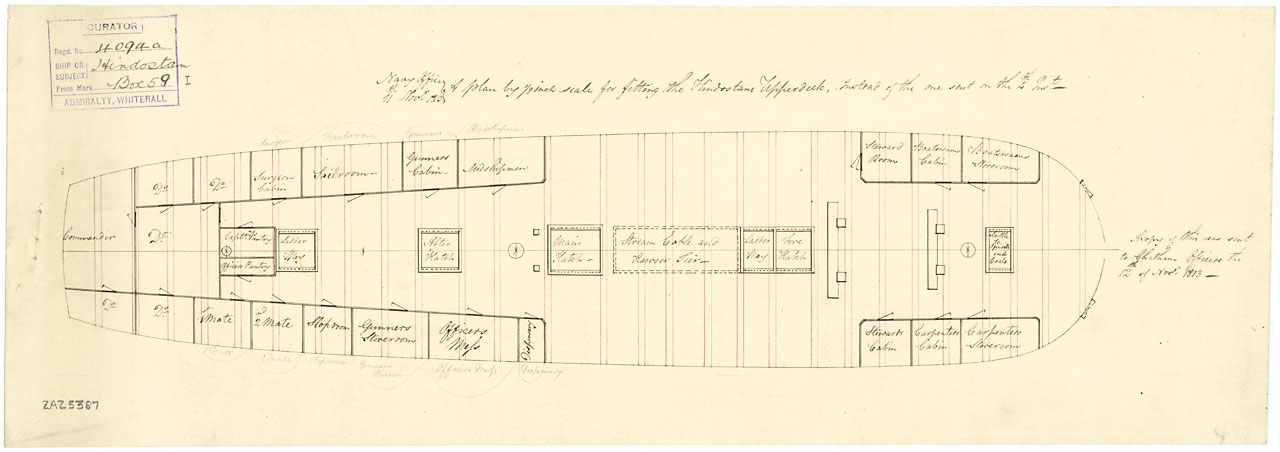 CURATOR
Regd. No. 4094a
SHIP OR SUBJECT Hindostan
Press Mark Box 59 I
ADMIRALTY, WHITEHALL
Navy Office
Novr. 1813
A plan by ½ inch scale for fitting the Hindostans Upperdeck, Instead of the one sent on the 4th Inst.
Surgeon
Sailroom
Gunners
Midshipmen
Do
Do
Surgeon
Cabin
Sailroom
Gunners
Cabin
Midshipmen
Steward
Room
Boatswains
Cabin
Boatswains
Storeroom
Commander
Do
Captns Pantry
Officers Pantry
Ladder
Way
After
Hatch
Main
Hatch
Stream Cable and
Hawser Tier
Ladder
Way
Fore
Hatch
Scuttle
to
Spirits
and
Coals
A copy of this was sent
to Chatham Officers the
12th of Novr. 1813
Do
Do
1st Mate
2d Mate
Sloproom
Gunners
Storeroom
Officers
Mess
Dispensary
Stewards
Cabin
Carpenters
Cabin
Carpenters
Storeroom
2 Mate
Sloproom
Gunners
Officers Mess
Dispensary
ZAZ5367